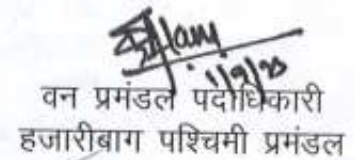 1/9/20
वन प्रमंडल पदाधिकारी
हजारीबाग पश्चिमी प्रमंडल